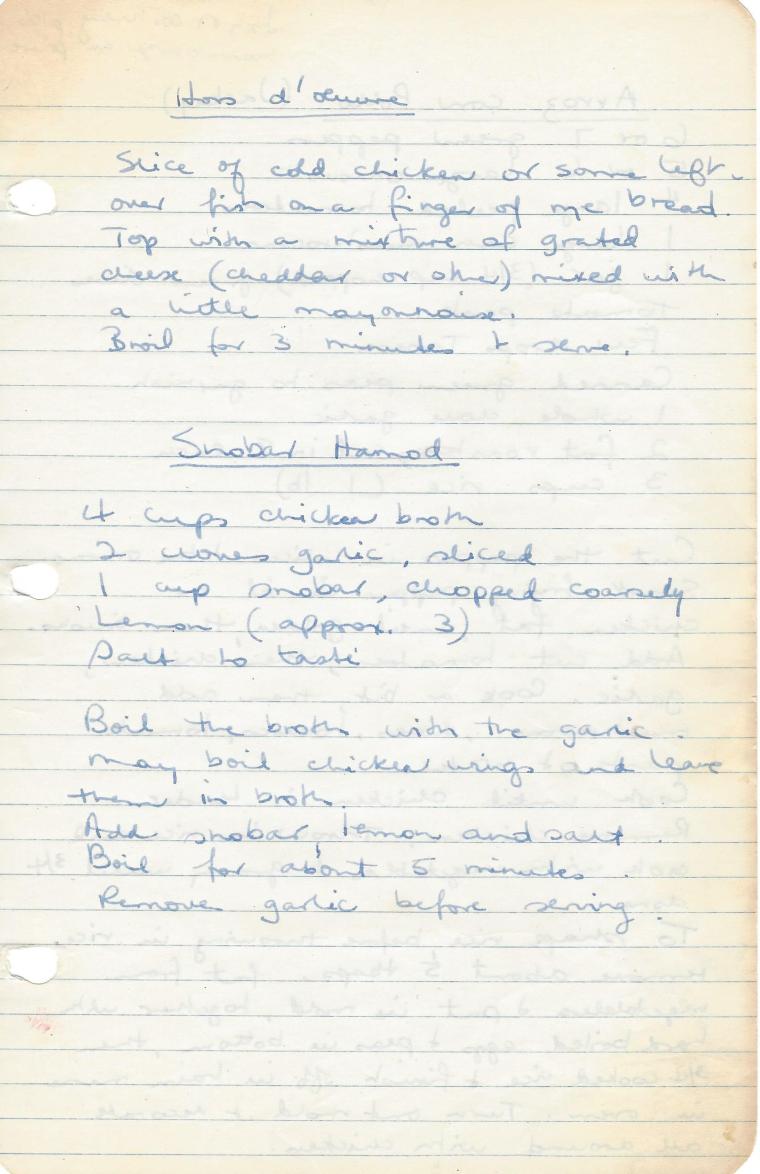 Hors d'oeuvre
Slice of cold chicken or some left-
over fish on a finger of rye bread.
Top with a mixture of grated
cheese (cheddar or other) mixed with
a little mayonnaise.
Broil for 3 minutes & serve.
Snobar Hamod
4 cups chicken broth
2 cloves garlic, sliced
1 cup snobar, chopped coarsely
Lemon (approx. 3)
Salt to taste
Boil the broth with the garlic.
may boil chicken wings and leave
them in broth.
Add snobar, lemon and salt.
Boil for about 5 minutes.
Remove garlic before serving.